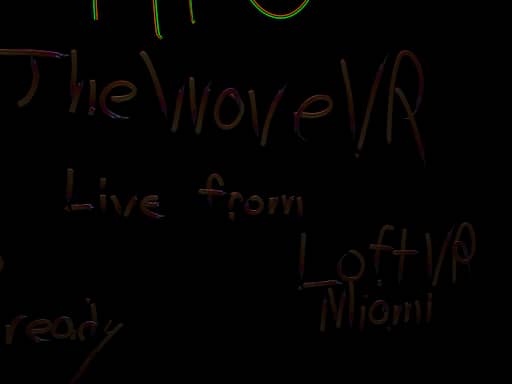 TheWaveVR
Live from
LoftVR
Miami
ready